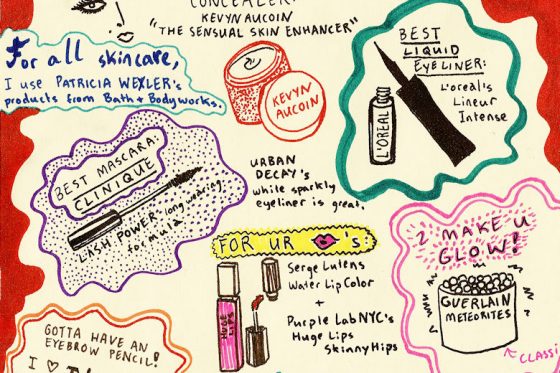 CONCEALER:
KEVYN AUCOIN
"THE SENSUAL SKIN ENHANCER"
For all skincare,
I use PATRICIA WEXLER's
products from Bath + Bodyworks.
KEVYN
AUCOIN
BEST
LIQUID
EYELINER:
L'oreal's
Lineur
Intense
L'OREAL
BEST MASCARA
CLINIQUE
LASH POWER long wearing
formula
URBAN
DECAY's
white sparkly
eyeliner is great.
FOR UR 's:
Serge Lutens
Water Lip Color
+
Purple Lab NYC's
Huge Lips
Skinny Hips
HUGE
LIPS
2 MAKE U
GLOW!
GUERLAIN
METEORITES
CLASSI
GOTTA HAVE AN
EYEBROW PENCIL!
I